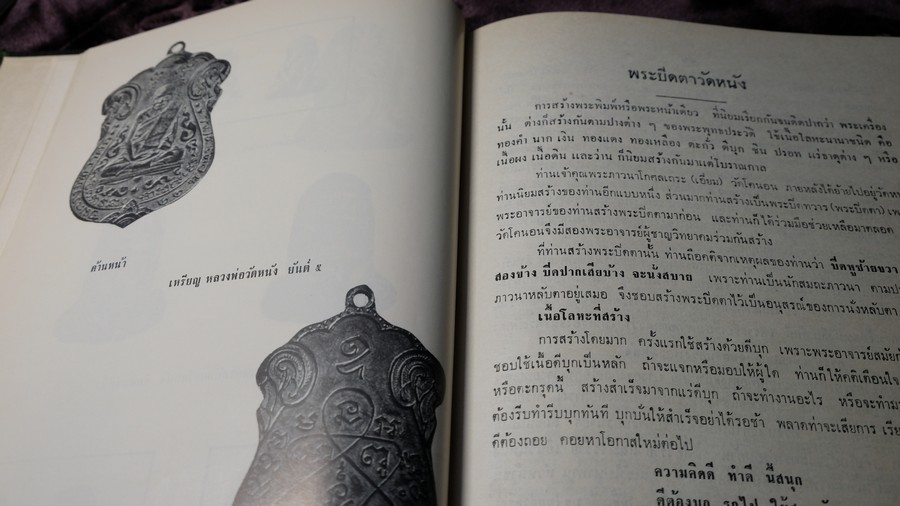 ด้านหน้า
เหรียญ หลวงพ่อวัดหนัง ยันต์ ๕
พระปิดตาวัดหนัง
การสร้างพระพิมพ์หรือพระหน้าเดียว ที่นิยมเรียกกันจนติดปากว่า พระเครื่อง
นั้น ต่างก็สร้างกันตามปางต่าง ๆ ของพระพุทธประวัติ ใช้เนื้อโลหะนานาชนิด คือ
ทองคำ นาก เงิน ทองแดง ทองเหลือง ตะกั่ว ดีบุก ชิน ปรอท แร่ธาตุต่าง ๆ หรือ
เนื้อผง เนื้อดิน และว่าน ก็นิยมสร้างกันมาแต่โบราณกาล
ท่านเจ้าคุณพระภาวนาโกศลเถระ (เอี่ยม) วัดโคนอน ภายหลังได้ย้ายไปอยู่วัดห
ท่านนิยมสร้างของท่านอีกแบบหนึ่ง ส่วนมากท่านสร้างเป็นพระปิดทวาร (พระปิดตา)
พระอาจารย์ของท่านสร้างพระปิดตามาก่อน และท่านก็ได้ร่วมมือช่วยเหลือมาตลอด
วัดโคนอนจึงมีสองพระอาจารย์ผู้ชาญวิทยาคมร่วมกันสร้าง
ที่ท่านสร้างพระปิดตานั้น ท่านถือคติจากเหตุผลของท่านว่า ปิดหูซ้ายขวา
สองข้าง ปิดปากเสียบ้าง จะนั่งสบาย เพราะท่านเป็นนักสมถะภาวนา ตามป
ภาวนาหลับตาอยู่เสมอ จึงชอบสร้างพระปิดตาไว้เป็นอนุสรณ์ของการนั่งหลับตา
เนื้อโลหะที่สร้าง
การสร้างโดยมาก ครั้งแรกใช้สร้างด้วยดีบุก เพราะพระอาจารย์สมัยก
ชอบใช้เนื้อดีบุกเป็นหลัก ถ้าจะแจกหรือมอบให้ผู้ใด ท่านก็ให้คติเตือนใจ
หรือตะกรุดนี้ สร้างสำเร็จมาจากแร่ดีบุก ถ้าจะทำงานอะไร หรือจะทำมา
ต้องรีบทำรีบบุกทันที บุกบั่นให้สำเร็จอย่าได้รอช้า พลาดท่าจะเสียการ เรีย
ดีต้องถอย คอยหาโอกาสใหม่ต่อไป
ความคิดดี ทำดี นี้สนุก
ดีต้องบุก